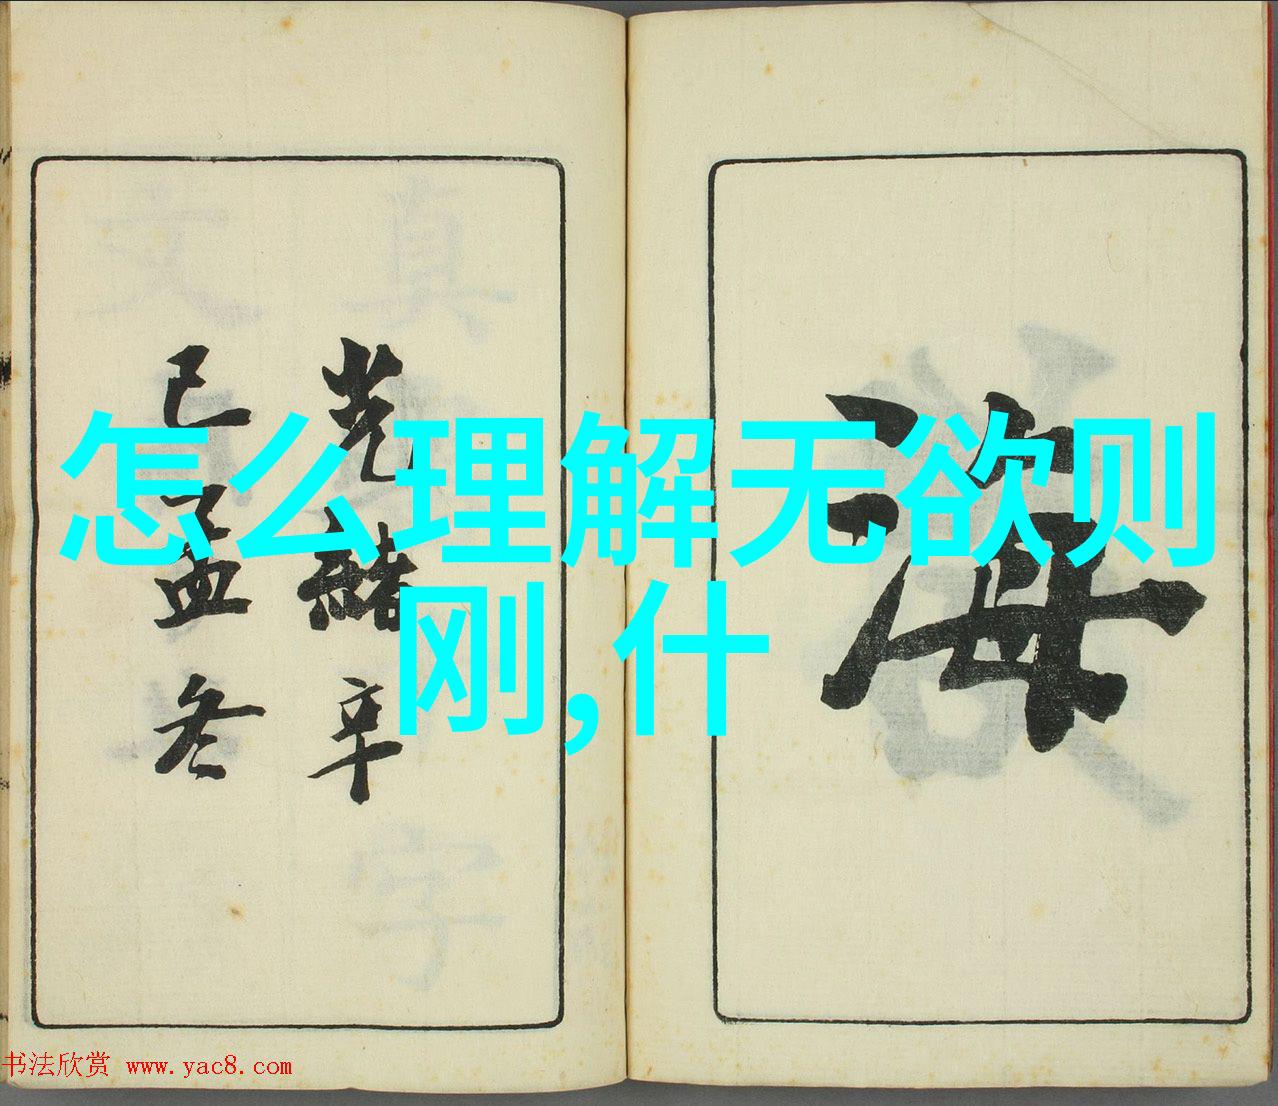 怎么理解无欲则
刚,什
海
光緒辛
巳孟冬
书法欣赏 www.yac8.com